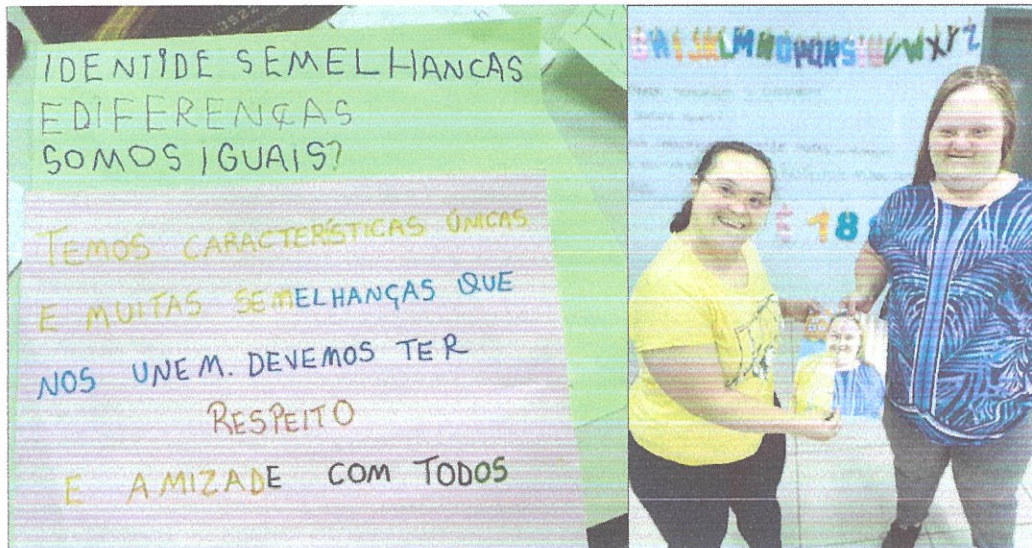 IDENTIDE SEMELHANCAS
EDIFERENÇAS
SOMOS IGUAIS?
TEMOS CARACTERÍSTICAS ÚNICAS
E MUITAS SEMELHANÇAS QUE
NOS UNEM. DEVEMOS TER
RESPEITO
E AMIZADE COM TODOS
18